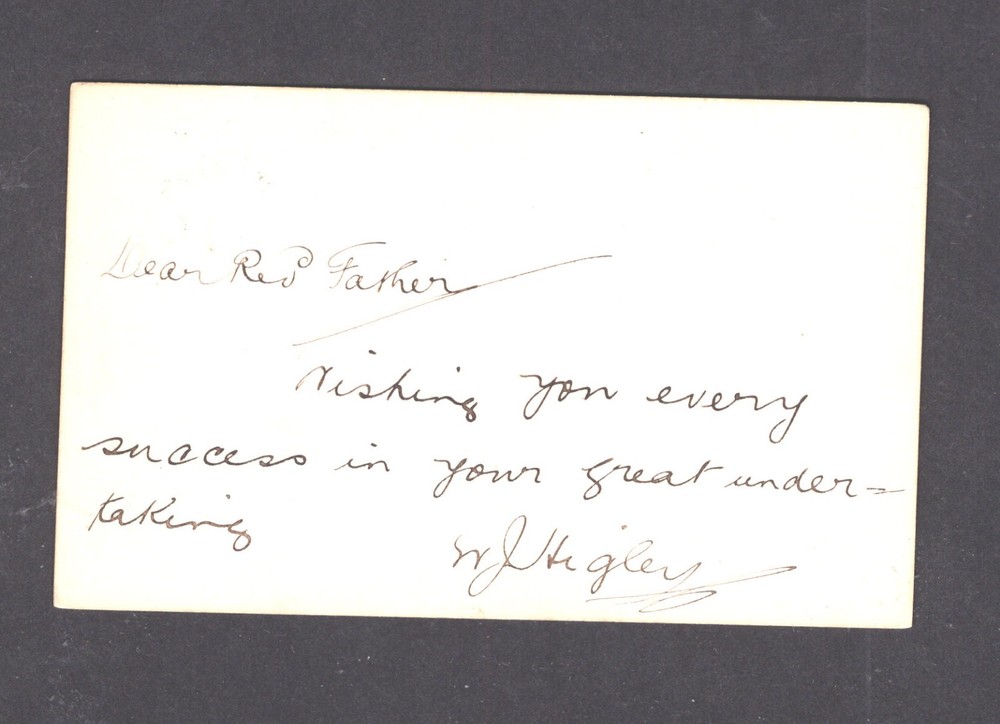 Dear Rev Father
Wishing you every
success in your great under=
taking
W J Higley